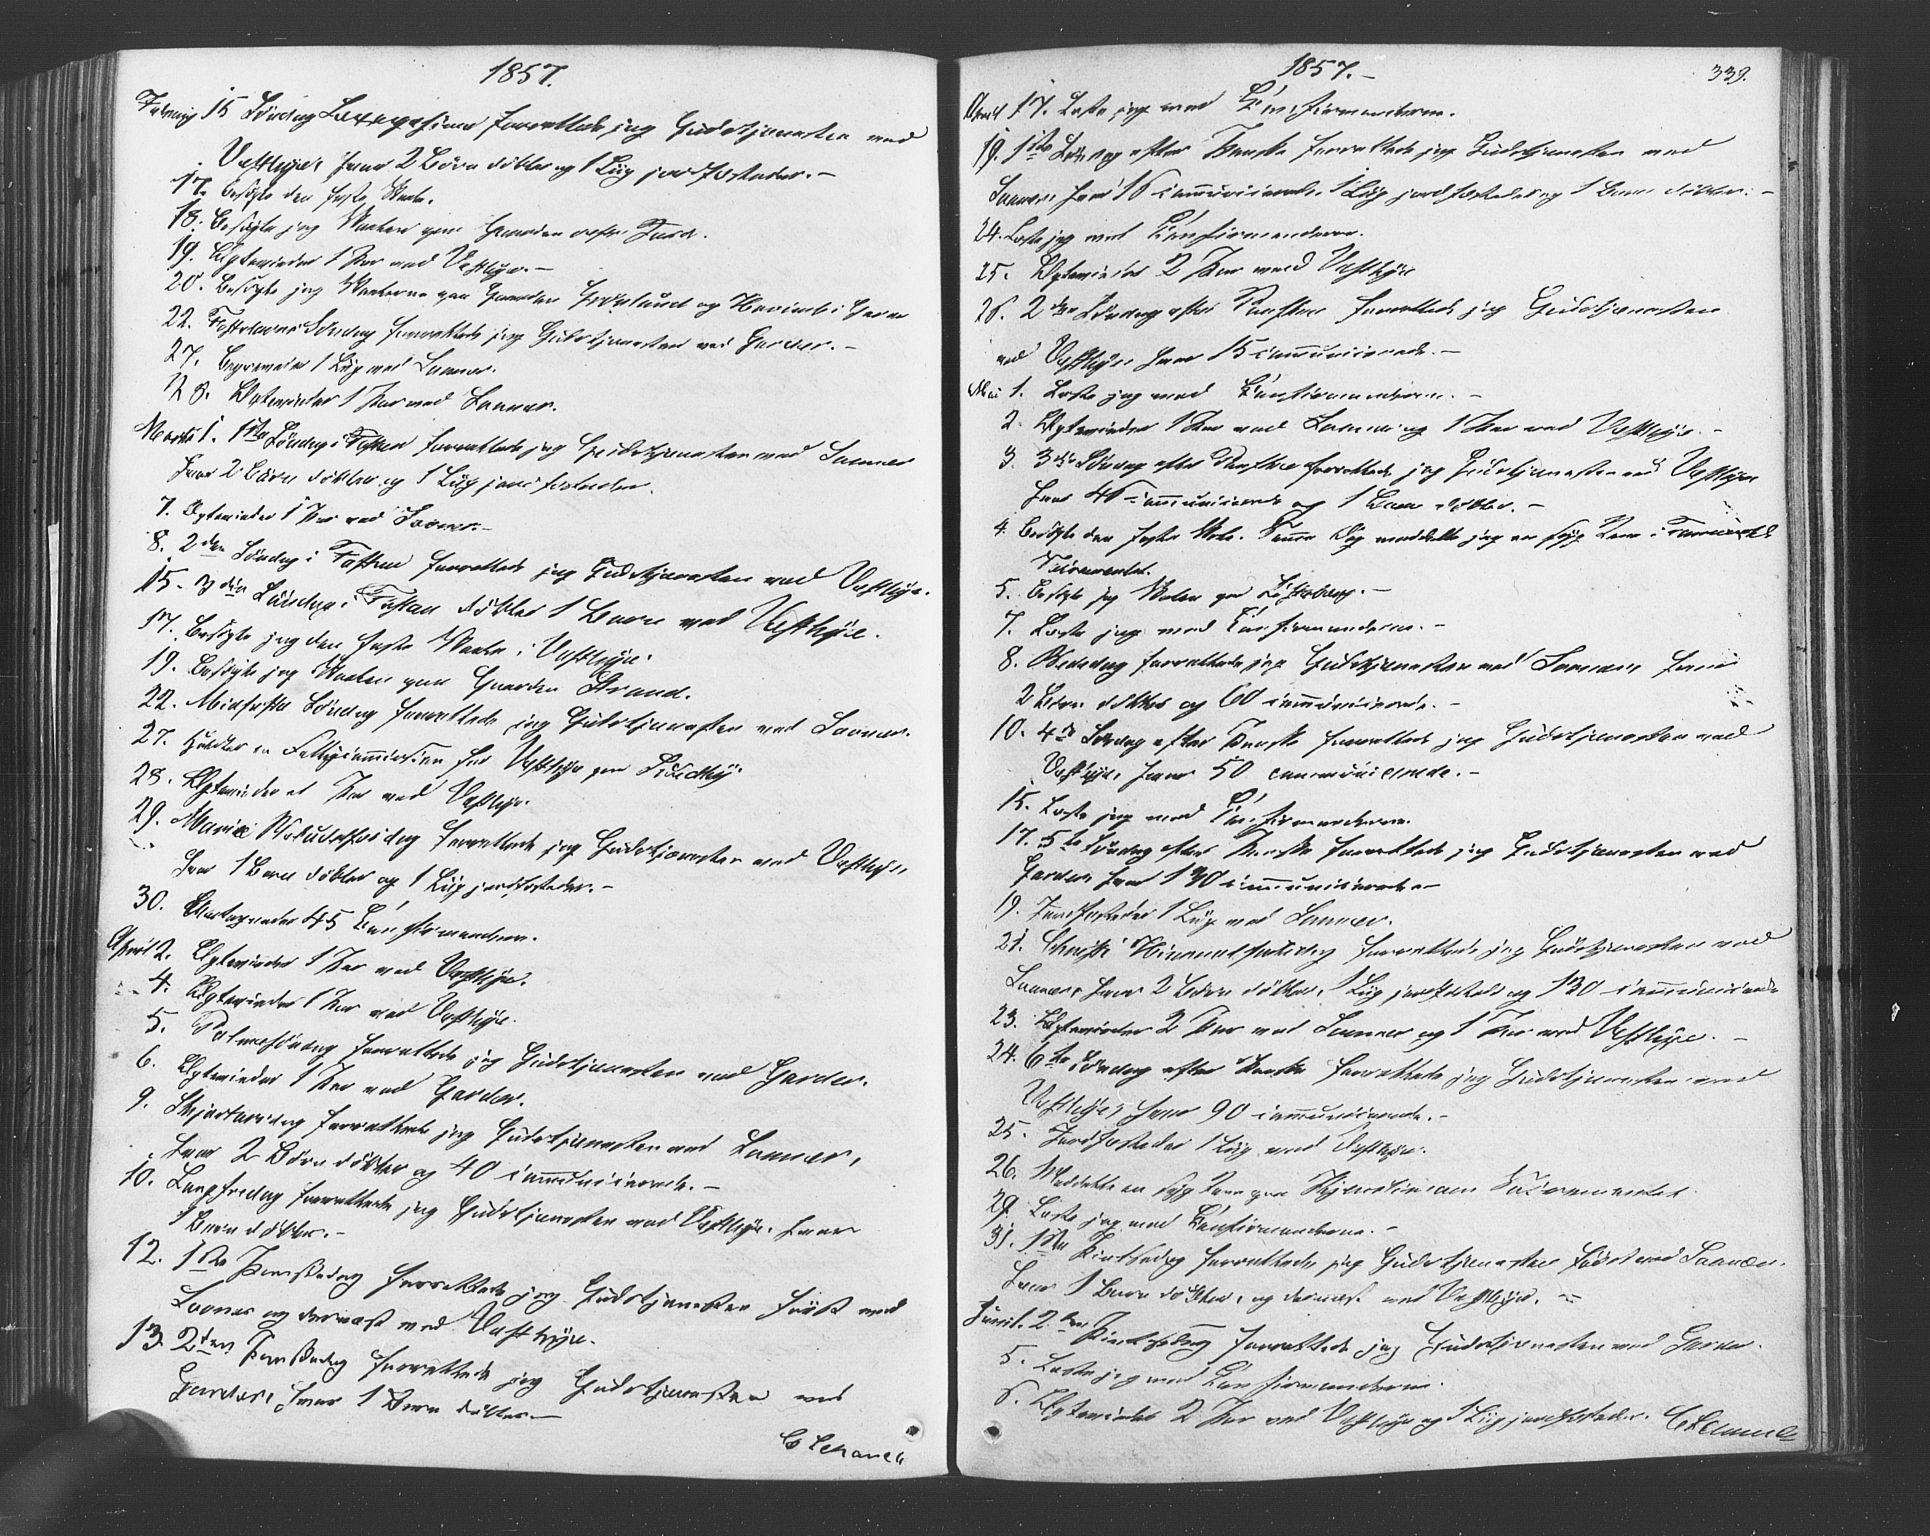 1857.
Februar 15 Söndag Sexagesima forrettede jeg Gudstjenesten ved
Vestbye, hvor 2 Börn döbtes og 1 Liig jordfæstedes.-
17. Besögte den faste Skole.
18. Besögte jeg Skolen paa Gaarden
19. Ægteviedes 1 Par ved Vestbye.-
20. Besögte jeg Skolerne paa Gaarden og i Garder
22. Fastelavns Söndag forrettede jeg Gudstjenesten ved Garder.-
27. 1 Liig ved Soner.
28. Ægteviedes 1 Par ved Soner.
Marts 1. 1ste Söndag i Fasten forrettede jeg Gudstjenesten ved Soner
hvor 2 Börn döbtes og 1 Liig jordfæstedes.
7. Ægteviedes 1 Par ved Soner.-
8. 2den Söndag i Fasten forrettede jeg Gudstjenesten ved Vestbye.
15. 3die Söndag i Fasten döbtes 1 Barn ved Vestbye.
17. Besögte jeg den faste Skole i Vestbye.
19. Besögte jeg Skolen paa Gaarden Strand.
22. Midfaste Söndag forrettede jeg Gudstjenesten ved Soner.
27. Holdtes en Fattigcommission for Vestbye paa
28. Ægteviedes et Par ved Vestbye.
29. Mariæ Bebudelsesdag forrettede jeg Gudstjenesten ved Vestbye,
hvor 1 Barn döbtes og 1 Liig jordfæstedes.-
30. Antegnedes 45 Confirmander.
April 2. Ægteviedes 1 Par ved Vestbye.
4. Ægteviedes 1 Par ved Vestbye.
5. Palmesöndag forrettede jeg Gudstjenesten ved Garder.
6. Ægteviedes 1 Par ved Garder.
9. Skjærtorsdag forrettede jeg Gudstjenesten ved Soner,
hvor 2 Börn döbtes og 40 communicerede.-
10. Langfredag forrettede jeg Gudstjenesten ved Vestbye, hvor
1 Barn döbtes.-
12. 1ste Paaskedag forrettede jeg Gudstjenesten först ved
Soner og dernæst ved Vestbye.
13. 2den Paaskedag forrettede jeg Gudstjenesten ved
Garder, hvor 1 Barn döbtes.-
1857.-
339.
April 17. Læste jeg med Confirmanderne.
19. 1ste Söndag efter Paaske forrettede jeg Gudstjenesten ved
Soner, hvor communicerede, 1 Liig jordfæstedes og 1 Barn döbtes.-
24. Læste jeg med Confirmanderne.
25. Ægteviedes 2 Par ved Vestbye
26. 2den Söndag efter Paaske forrettede jeg Gudstjenesten
ved Vestbye, hvor 15 communicerede.-
Mai 1. Læste jeg med Confirmanderne.-
2. Ægteviedes 1 Par ved Soner og 1 Par ved Vestbye.-
3. 3die Söndag efter Paaske forrettede jeg Gudstjenesten ved Vestbye
hvor communicerede og 1 Barn döbtes.-
4. Besögte den faste Skole. Samme Dag meddelte jeg en syg Kone i
Sacramentet.
5. Besögte jeg Skolen paa
7. Læste jeg med Confirmanderne.-
8. Bededag forrettede jeg Gudstjenesten ved Soner, hvor
2 Börn döbtes og 60 communicerede.-
10. 4de Söndag efter Paaske forrettede jeg Gudstjenesten ved
Vestbye, hvor 50 communicerede.-
15. Læste jeg med Confirmanderne.
17. 5te Söndag efter Paaske forrettede jeg Gudstjenesten ved
Garder, hvor 130 communicerede.-
19. Jordfæstedes 1 Liig ved Soner.
21. Christi Himmelfartsdag forrettede jeg Gudstjenesten ved
Soner, hvor 2 Börn döbtes, 1 Liig jordfæstedes og 130 communicerede
23. Ægteviedes 2 Par ved Soner og 1 Par ved Vestbye.-
24. 6te Söndag efter Paaske forrettede jeg Gudstjenesten ved
Vestbye, hvor 90 communicerede.-
25. Jordfæstedes 1 Liig ved Vestbye.
26. Meddelte en syg Kone paa Sacramentet.
29. Læste jeg med Confirmanderne.-
31. 1ste Pintsedag forrettede jeg Gudstjenesten först ved Soner,
hvor 1 Barn döbtes, og dernæst ved Vestbye.
Juni 1. 2den Pintsedag forrettede jeg Gudstjenesten ved Garder.
5. Læste jeg med Confirmanderne.
6. Ægteviedes 2 Par ved Vestbye og 1 Liig jordfæstedes.